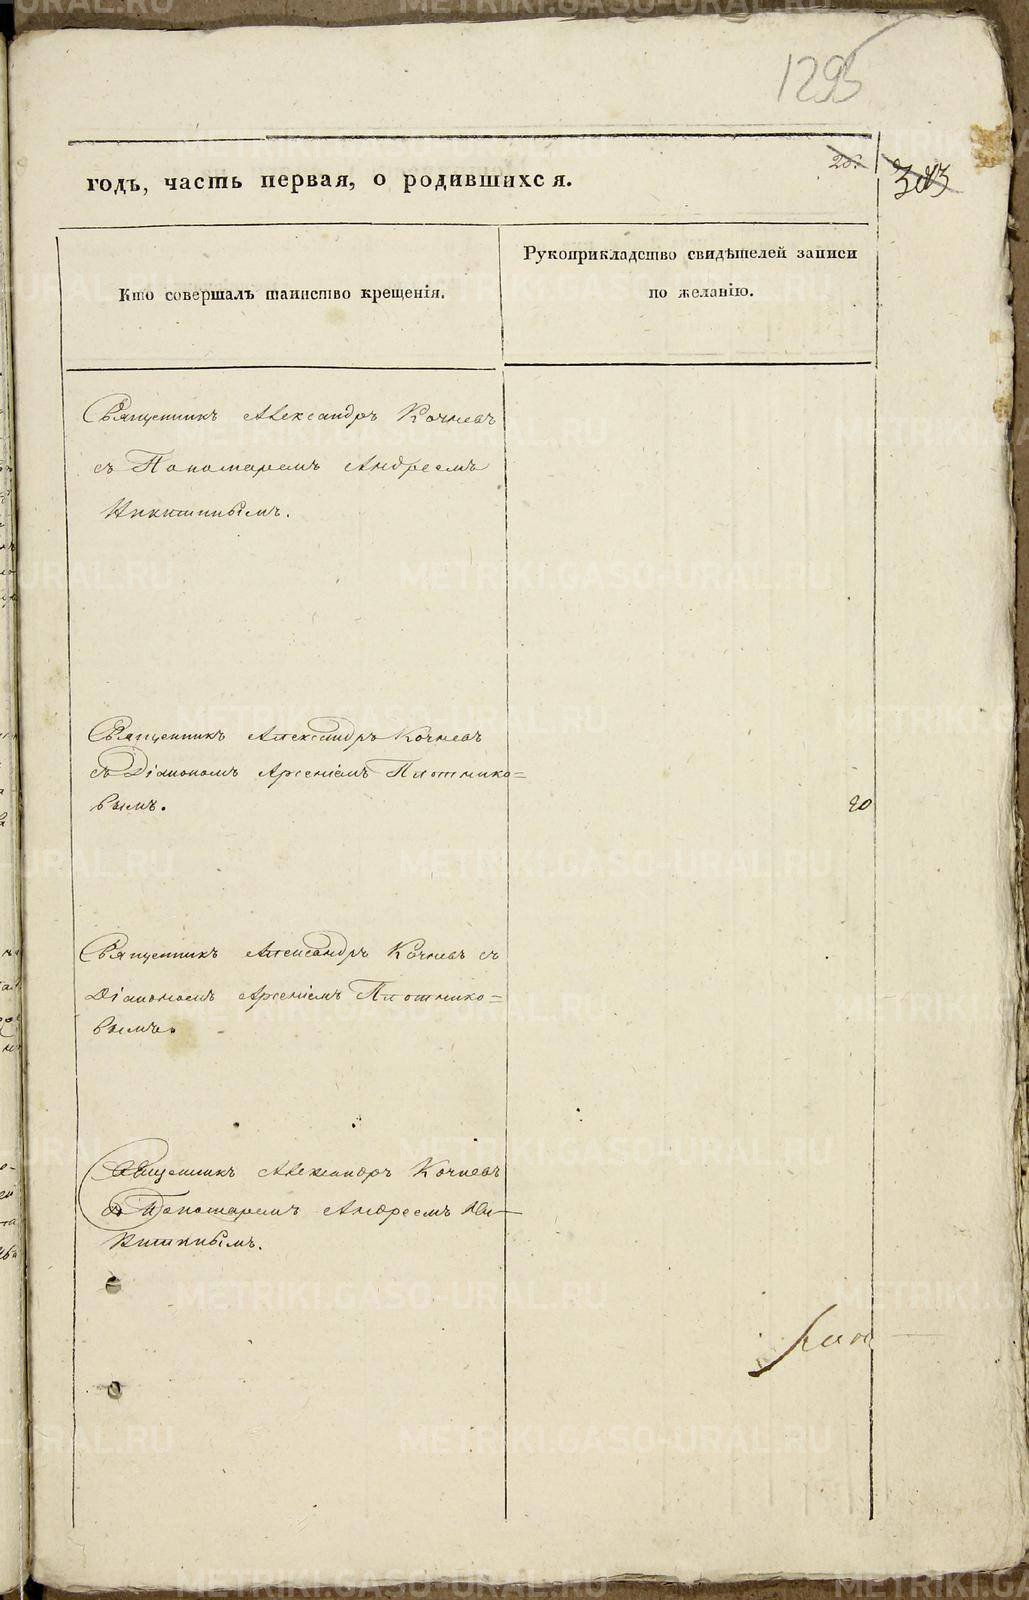 1295
годъ, часть первая, о родившихся.
303
Кто совершалъ таинство крещенія.
Рукоприкладство свидѣтелей записи
по желанію.
Священникъ Александръ Кочневъ
съ Пономаремъ Андреемъ
Никитинымъ.
Священникъ Александръ Кочневъ
съ Діакономъ Арсеніемъ Плотнико=
вымъ.
20
Священникъ Александръ Кочневъ съ
Діакономъ Арсеніемъ Плотнико=
вымъ.
Священникъ Александръ Кочневъ
съ Пономаремъ Андреемъ Ни-
китинымъ.
METRIKI.GASO-URAL.RU